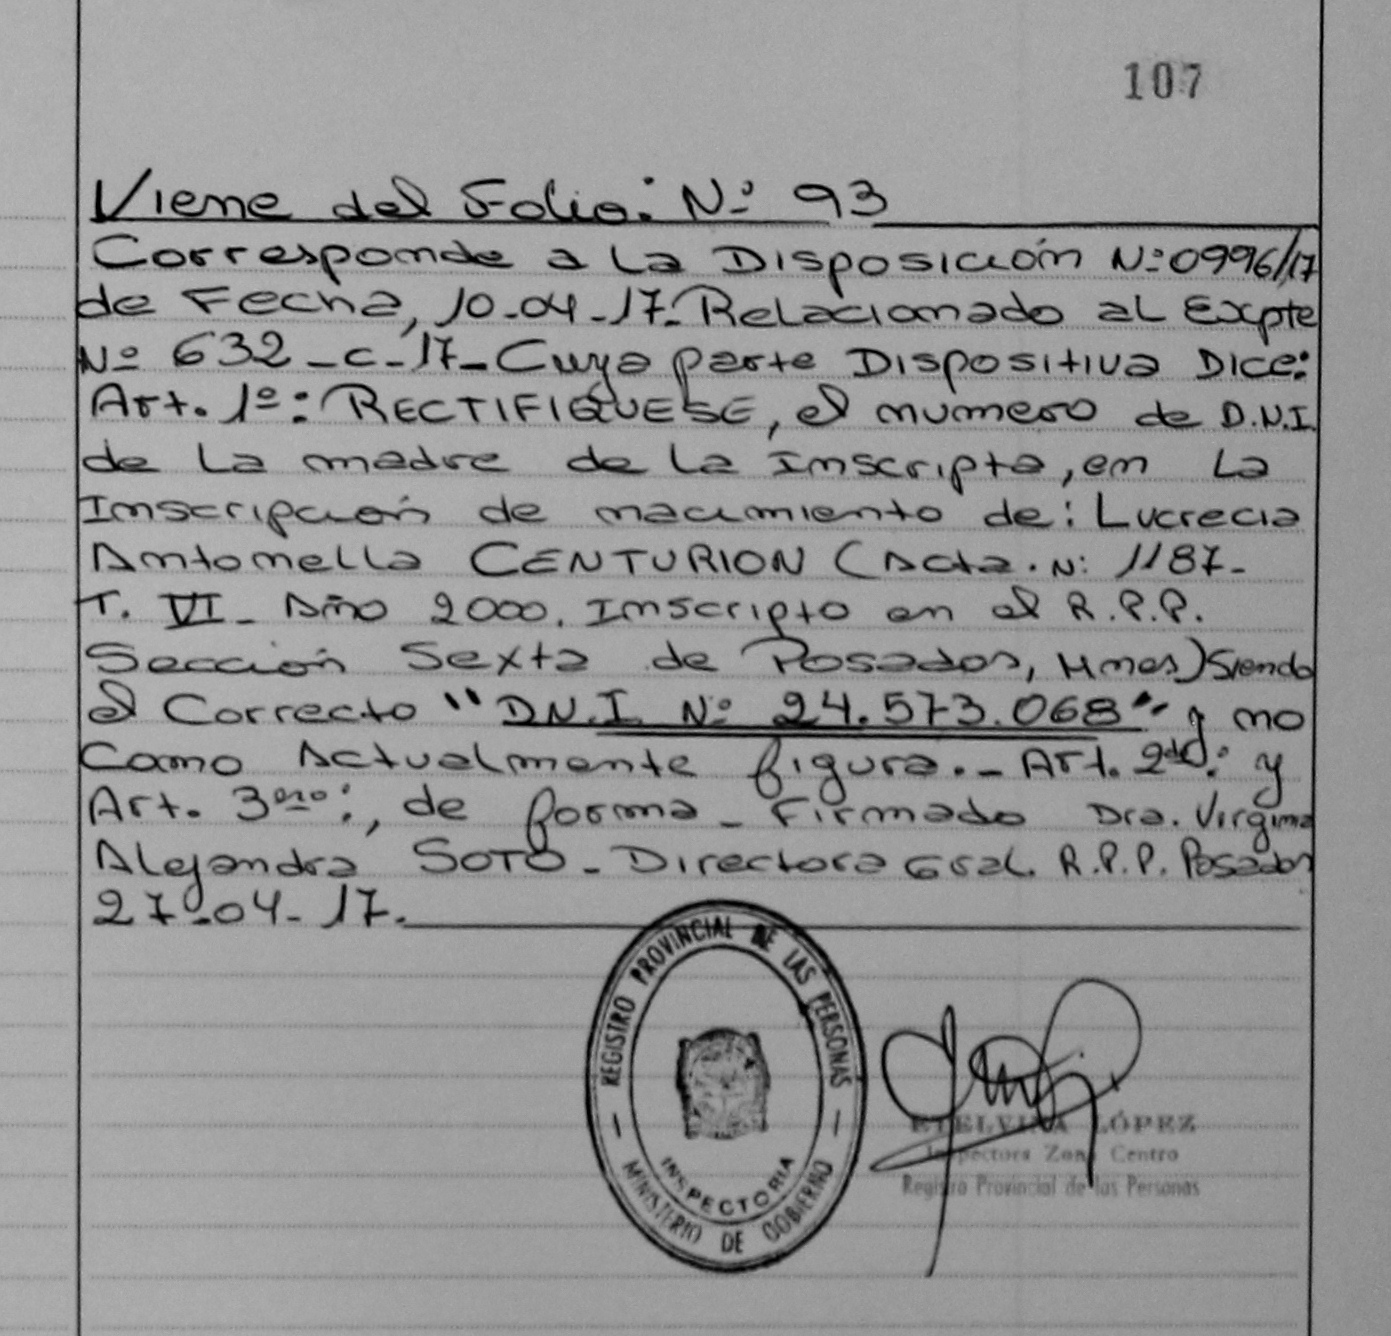 107
Viene del Folio: Nº 93
Corresponde a la Disposición Nº 0996/17
de Fecha, 10-04-17- Relacionado al Expte
Nº 632-c-17- Cuya parte Dispositiva Dice:
Art. 1º: RECTIFIQUESE, el numero de D.N.I.
de la madre de la inscripta, en la
Inscripción de nacimiento de: Lucrecia
Antonella CENTURION (Acta. Nº 1187-
T. VI- Año 2000. Inscripto en el R.P.P.
Sección Sexta de Posadas, Mnes) Siendo
el Correcto "D.N.I. Nº 24.573.068" y no
Como Actualmente figura.- Art. 2do: y
Art. 3ero:, de forma- Firmado Dra. Virginia
Alejandra SOTO- Directora Gral. R.P.P. Posadas
27-04-17.
REGISTRO PROVINCIAL DE LAS PERSONAS
INSPECTORIA
MINISTERIO DE GOBIERNO
ETELVINA LÓPEZ
Inspectora Zona Centro
Registro Provincial de las Personas